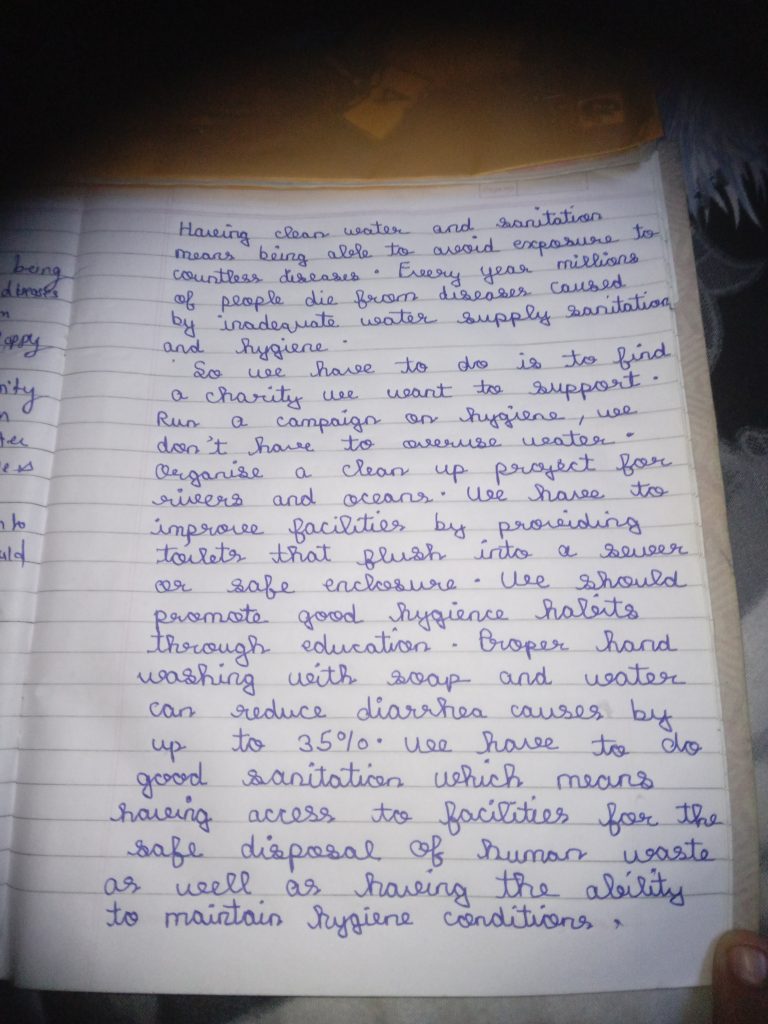 being
diseases
appy
nity
ter
n to
uld
Having clean water and sanitation
means being able to avoid exposure to
countless diseases. Every year millions
of people die from diseases caused
by inadequate water supply sanitation
and hygiene.
So we have to do is to find
a charity we want to support.
Run a campaign on hygiene, we
don't have to overuse water.
Organise a clean up project for
rivers and oceans. We have to
improve facilities by providing
toilets that flush into a sewer
or safe enclosure. We should
promote good hygience habits
through education. Proper hand
washing with soap and water
can reduce diarrhea causes by
up to 35%. We have to do
good sanitation which means
having access to facilities for the
safe disposal of human waste
as well as having the ability
to maintain hygiene conditions.